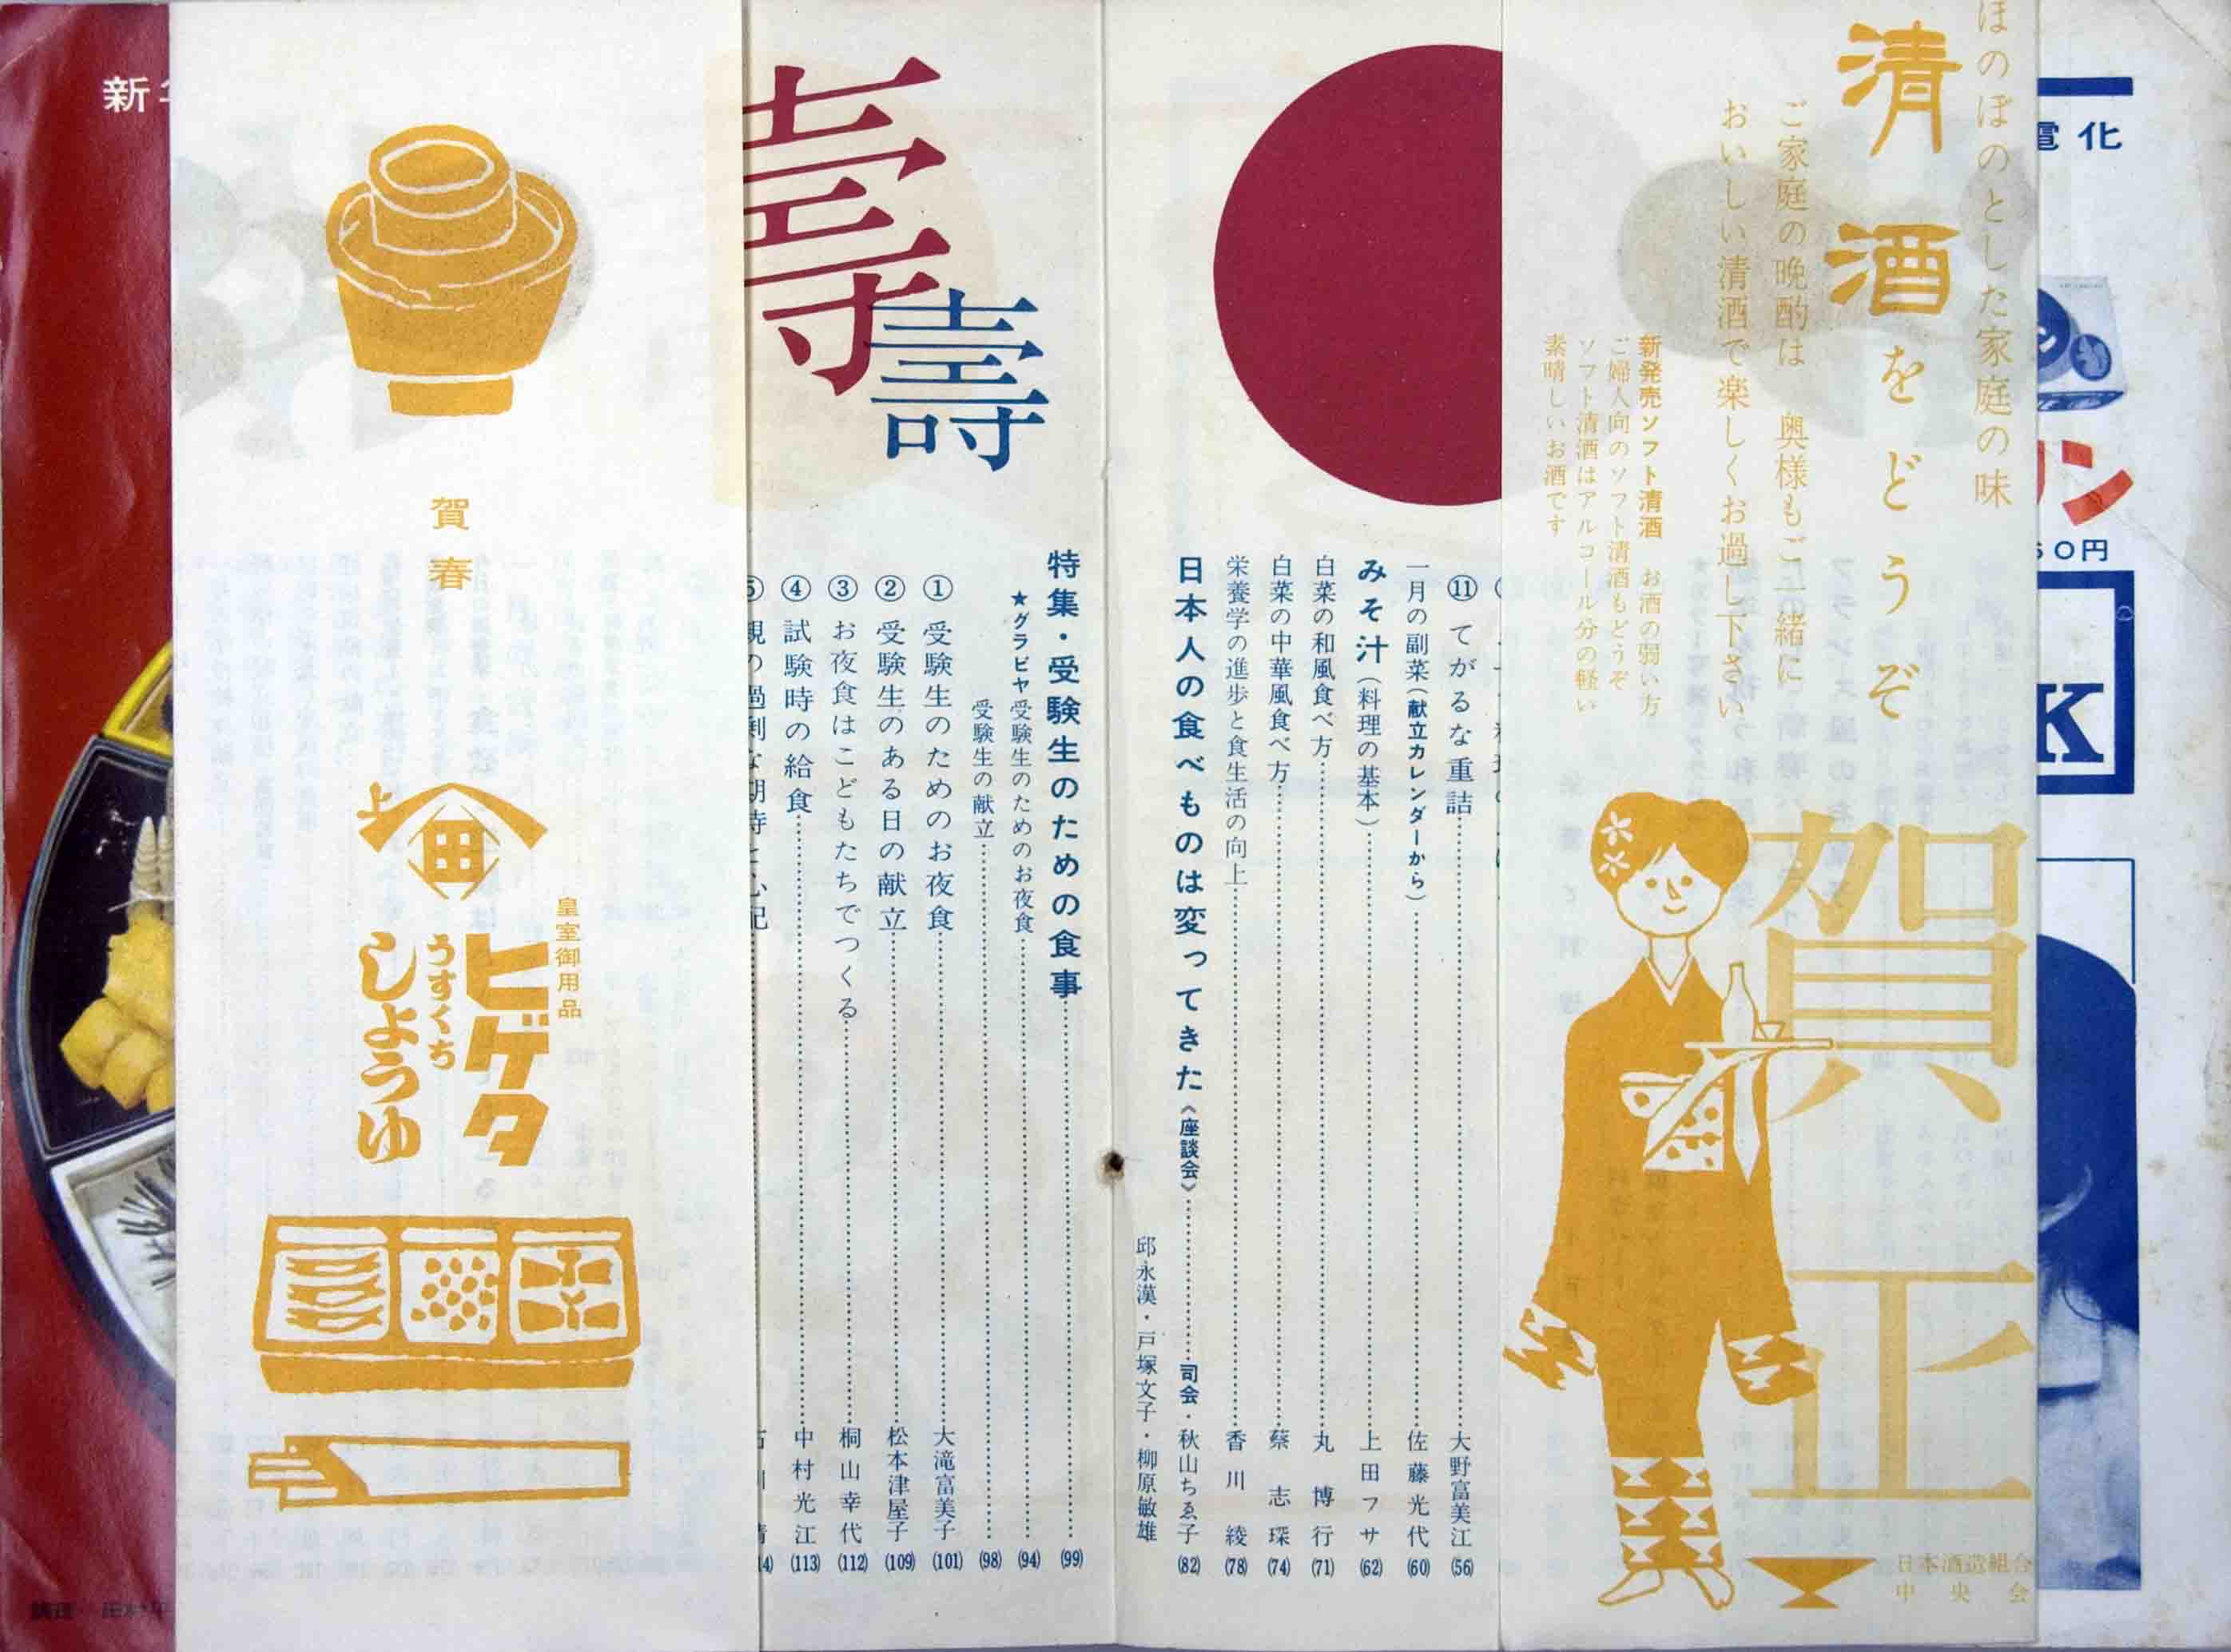 電化
リン
50円
K
ほのぼのとした家庭の味
清酒をどうぞ
ご家庭の晩酌は 奥様もご一緒に
おいしい清酒で楽しくお過し下さい
新発売ソフト清酒 お酒の弱い方
ご婦人向のソフト清酒もどうぞ
ソフト清酒はアルコール分の軽い
素晴しいお酒です
賀正
日本酒造組合
中央会
⑪てがるな重詰 大野富美江 (56)
一月の副菜(献立カレンダーから) 佐藤光代 (60)
みそ汁(料理の基本) 上田フサ (62)
白菜の和風食べ方 丸博行 (71)
白菜の中華風食べ方 蔡志琛 (74)
栄養学の進歩と食生活の向上 香川綾 (78)
日本人の食べものは変ってきた《座談会》 司会・秋山ちゑ子 (82)
邱永漢・戸塚文子・柳原敏雄
壽
壽
特集・受験生のための食事 (99)
★グラビヤ 受験生のためのお夜食 (94)
受験生の献立 (98)
①受験生のためのお夜食 大滝富美子 (101)
②受験生のある日の献立 松本津屋子 (109)
③お夜食はこどもたちでつくる 桐山幸代 (112)
④試験時の給食 中村光江 (113)
賀春
上
田
皇室御用品
ヒゲタ
うすくち
しょうゆ
新